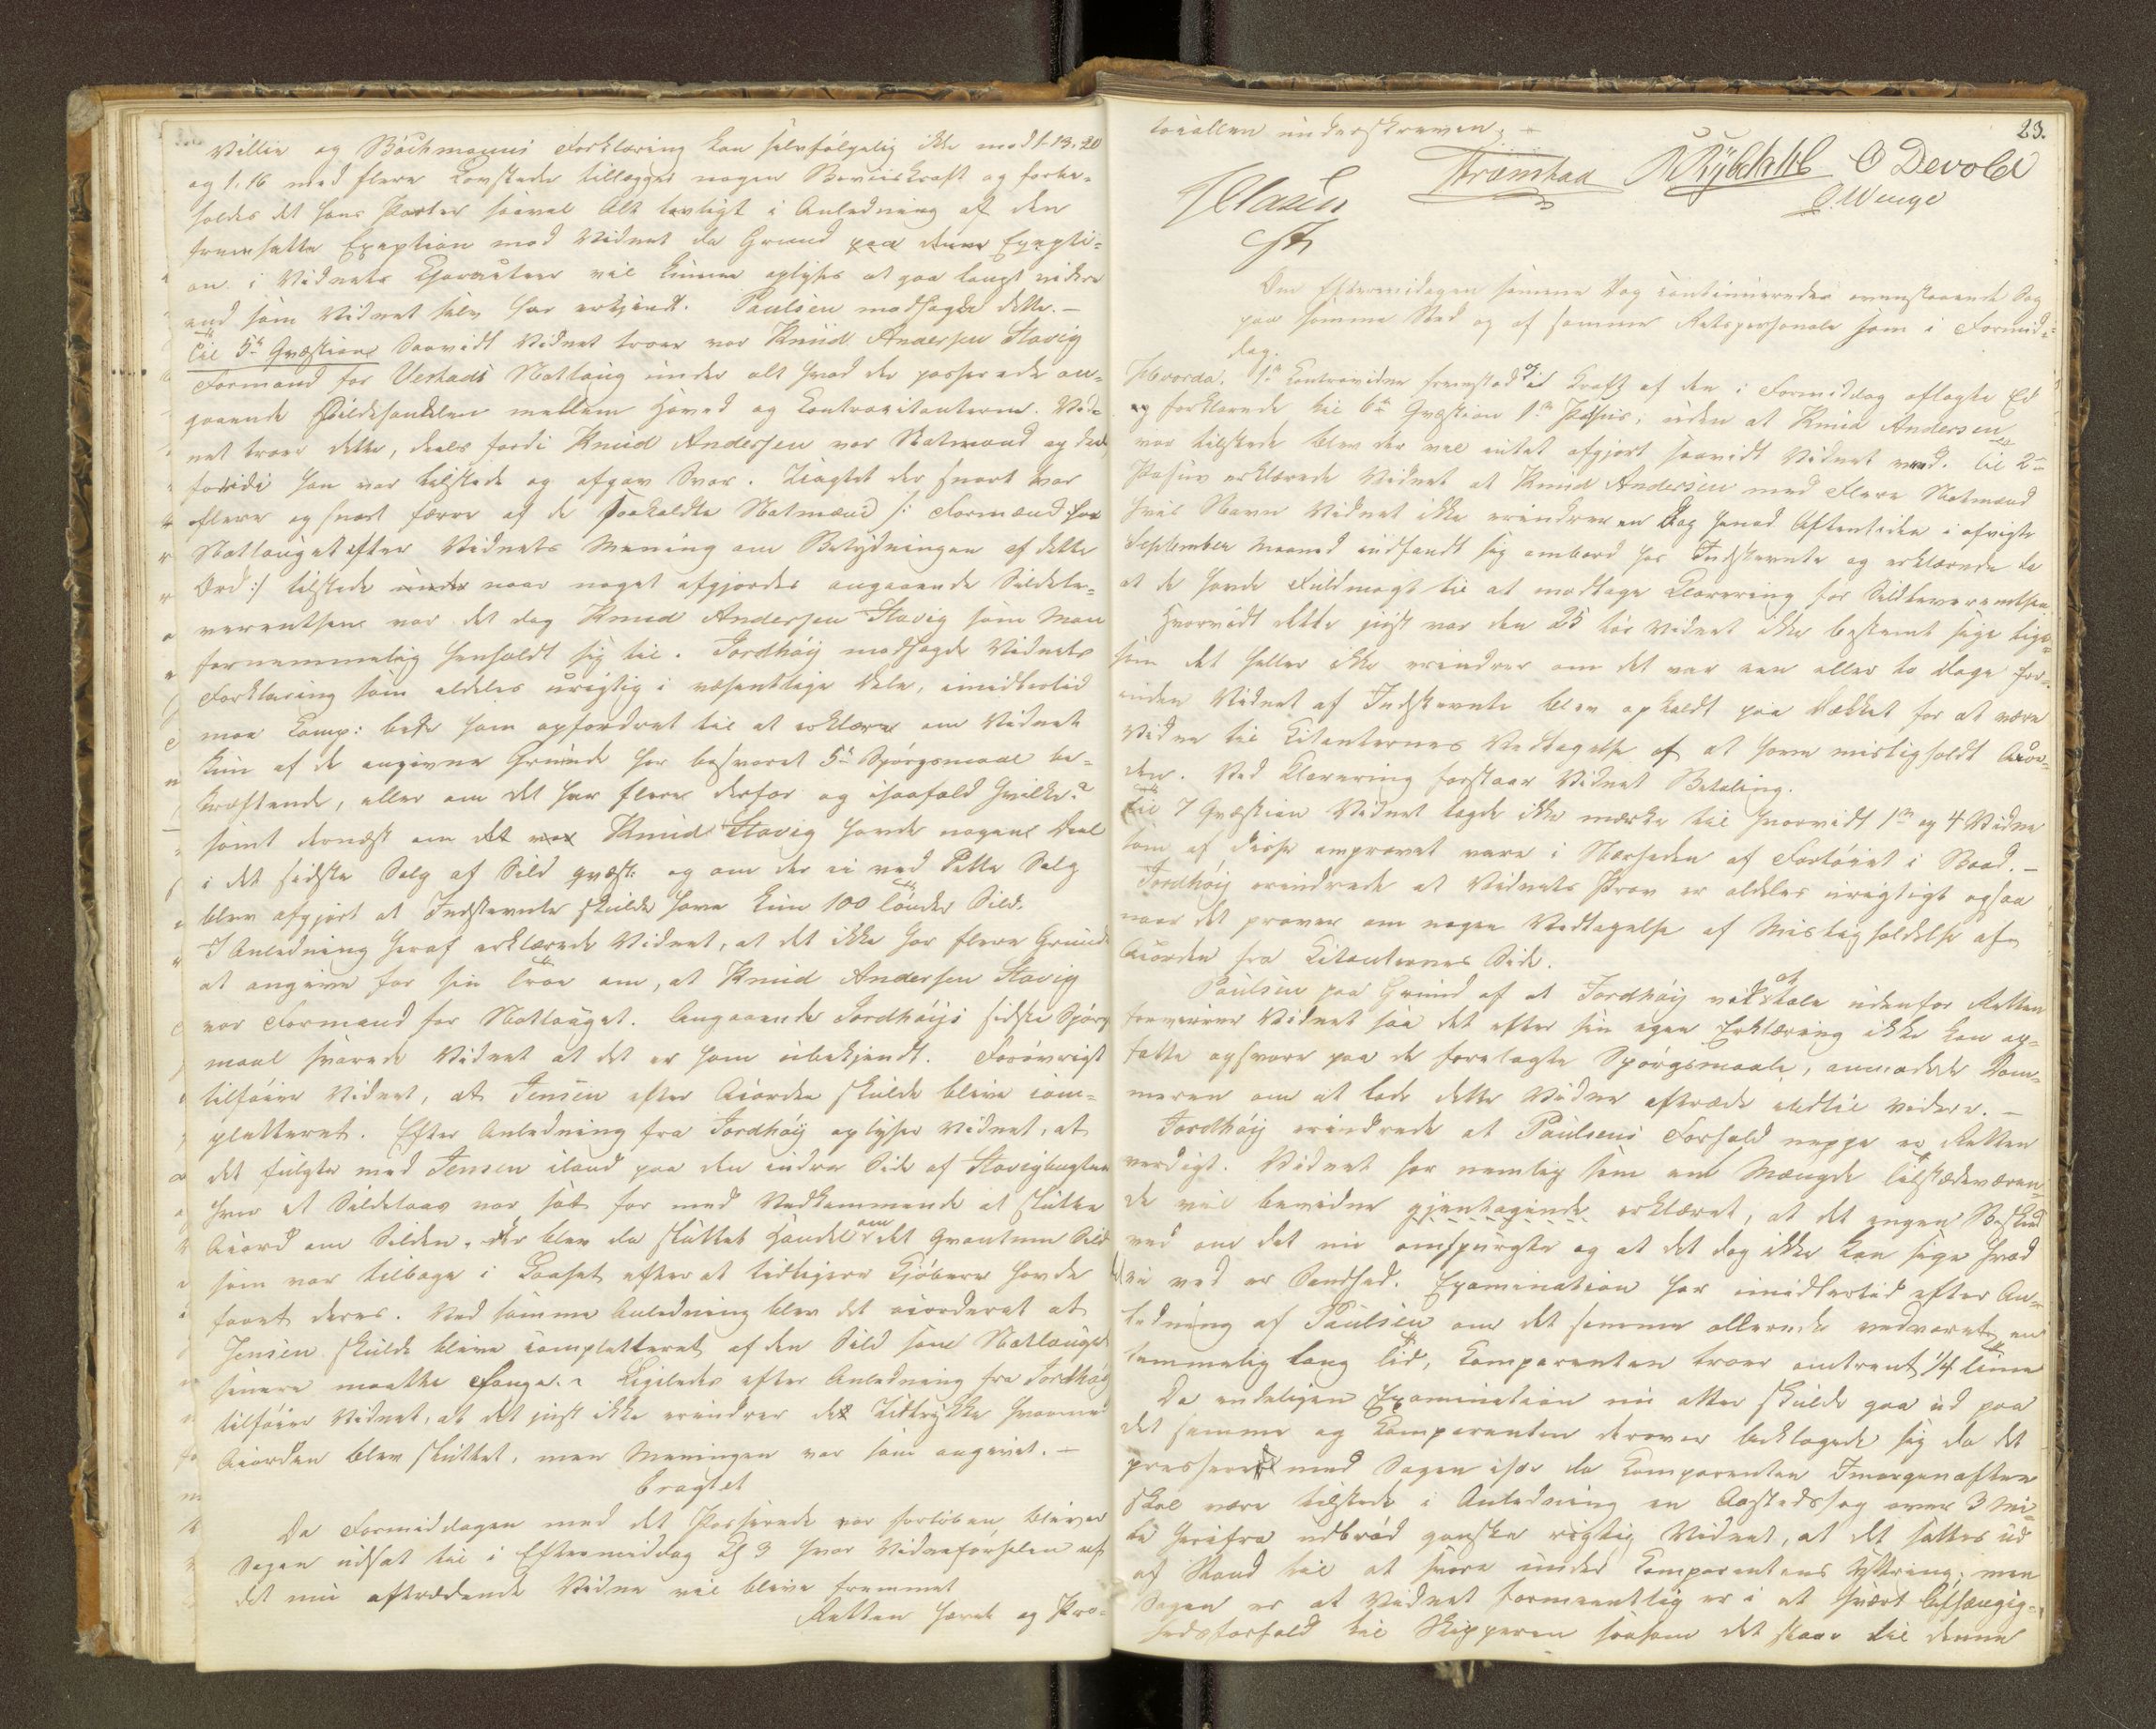 Villie og Bachmanns Forklaring kan selvfølgelig ikke mod 1-13-20
og 1-16 med flere Lovsteder tillægges nogen Beviiskraft og forbe-
holdes det hans Parter saavel Alt lovligt i Anledning af den
fremsatte Exeption mod Vidnet da Grund paa denne Exepti-
on i Vidnets Charakteer vil kunne oplyses at gaa langt videre
end som Vidnet selv har erkjendt. Paulsen modsagde dette. -
Til 5te Qvæstion Saavidt Vidnet troer var Knud Andersen Stavig
Formand for Vestads Notlaug under alt hvad der passerede an-
gaaende Sildehandelen mellem Hoved og Contracitanterne. Vid-
net troer dette, deels fordi Knud Andersen var Notmand og deels
fordi han var tilstede og afgav Svar. Uagtet der snart var
flere og snart færre af de saakaldte Notmænd /: Formænd for
Notlauget efter Vidnets Mening om Betydningen af dette
Ord :/ tilstede under naar noget afgjordes angaaende Sildele-
verentsen var det dog Knud Andersen Stavig som Man
fornemmelig henholdt sig til. Jordhøij modsagde Vidnets
Forklaring som aldeles urigtig i væsentlige Dele, imidlertid
maa Comp: bede ham opfordret til at erklære om Vidnet
kun af de angivne Grunde har besvaret 5te Spørgsmaal be-
kræftende, eller om det har flere derfor og isaafald hvilke?
samt dernæst om det var Knud Stavig havde nogen Deel
i det sidste Salg af Sild qvæst: og om der ei ved dette Salg
blev afgjort at Indstevnte skulde have kun 100 Tønder Sild.
I Anledning heraf erklærede Vidnet, at det ikke har flere Grunde
at angive for sin Troe om, at Knud Andersen Stavig
var Formand for Notlauget. Angaaende Jordhøijs sidste Spørgs
maal svarede Vidnet at det er ham ubekjendt. Forøvrigt
tilføier Vidnet, at Jensen efter Accorden skulde blive com-
pletteret. Efter Anledning fra Jordhøij oplyser Vidnet, at
det fulgte med Jensen iland paa den indre Side af Stavigbugten
hvor et Sildelaas var sat for med Vedkommende at slutte
Accord om Silden. der blev da sluttet Handel om det Qvantum Sild
som var tilbage i Laaset efter at tidligere Kjøbere havde
faaet deres. Ved samme Anledning blev det accorderet at
Jensen skulde blive completteret af den Sild som Notlauget
senere maatte fange. Ligeledes efter Anledning fra Jordhøij
tilføier Vidnet, at det just ikke erindrer det Udtrykke hvormed
Accorden blev sluttet, men Meningen var som angivet. -
bragtet
Da Formiddagen med det Passerede var forløben bliver
Sagen udsat til i Eftermiddag Kl 3 hvor Vidneførselen af
det nu aftrædende Vidne vil blive fremmet
Retten hævet og Pro-
23.
tocollen underskreven. -
Claus[en] Strømstad O Devold
O. Wenge
Om Eftermidagen samme Dag continueredes ovenstaaende Sag
paa samme Sted og af samme Retspersonale som i Formid-
dag.
Hvorda. 1te Contravidne fremstod og i Kraft af den i Formiddag aflagte Ed
og forklarede til 6te Qvæstion 1ste Passus; uden at Knud Andersen
var tilstede blev der vel intet afgjort saavidt Vidnet veed. til 2den
Passus erklærede Vidnet at Knud Andersen med flere Notmænd
hvis Navn Vidnet ikke erindrer en Dag henad Aftentiden i afvigte
September Maaned indfandt sig ombord hos Indstevnte og erklærede da
at de havde Fuldmagt til at modtage Clarering for Sildleverentsen
Hvorvidt dette just var den 25 tør Vidnet ikke bestemt sige lige-
som det heller ikke erindrer om det var een eller to Dage for-
inden Vidnet af Indstevnte blev opkaldt paa Dækket for at være
Vidne til Citanternes Vedtagelse af at have misligholdt Accor-
den. Ved Clarering forstaaer Vidnet Betaling.
til 7 Qvæstion Vidnet lagde ikke mærke til hvorvidt 1ste og 4 Vidne
som af disse omprovet vare i Nærheden af Fartøiet i Baad. -
Jordhøij erindrede at Vidnets Prov er aldeles urigtigt ogsaa
naar det prover om nogen Vedtagelse af Misligholdelse af
Accorden fra Citanternes Side.
Paulsen paa Grund af at Jordhøij ved at tale udenfor Retten
forvirrer Vidnet saa det efter sin egen Erklæring ikke kan op-
fatte ogsvare paa de forelagte Spørgsmaale, anmodede Dom-
meren om at lade dette Vidne aftræde indtil videre. -
Jordhøij erindrede at Paulsens Forhold neppe er Retten
værdigt. Vidnet har nemlig som end Mængde Tilstædeværen-
de vil bevidne gjentagende erklæret, at det ingen Besked
ved om det nu omspurgte og at det dog ikke kan sige hvad
ei ved er Sandhed. Examination har imidlertid efter An-
ledning af Paulsen om det samme allerede vedvaret en
temmelig lang Tid, Comparenten troer omtrent 1/4 Time
Da endeligen Examination nu atter skulde gaa ud paa
det samme og Comparenten derover beklagede sig da det
presserer med Sagen især da Comparenten Imorgenaften
skal være tilstede i Anledning en Aastedssag over 3 Mi-
le herifra udbrød ganske rigtig Vidnet, at det sattes ud
af Stand til at svare under Comparentens Yttring; men
Sagen er at Vidnet formeentlig er i et svært Afhængig-
hedsforhold til Skipperen saasom det staar til denne